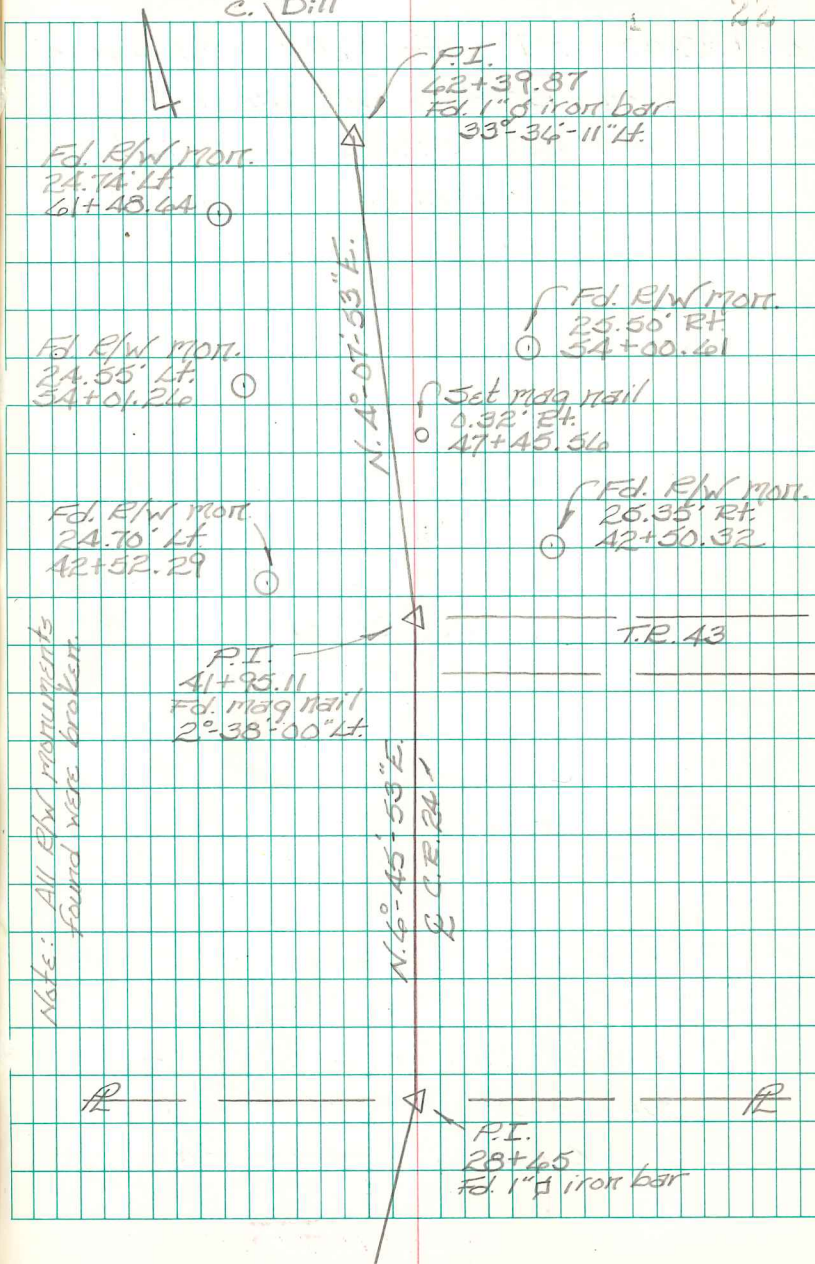 C. Dill
P.I.
62+39.87
Fd. 1"ø iron bar
33°-36'-11" Lt.
Fd. R/W mon.
24.74' Lt.
61+48.64
N. 4°-07'-53" E.
Fd. R/W mon.
25.50' Rt.
54+00.61
Fd. R/W mon.
24.55' Lt.
54+01.26
Set mag nail
0.32' Rt.
47+45.56
Fd. R/W mon.
25.35' Rt.
42+50.32
Fd. R/W mon.
24.70' Lt.
42+52.29
T.R. 43
P.I.
41+95.11
Fd. mag nail
2°-38'-00" Lt.
Note: All R/W monuments
found were broken.
N. 6°-45'-53" E.
℄ C.R. 24
PL
PL
P.I.
28+65
Fd. 1"ø iron bar